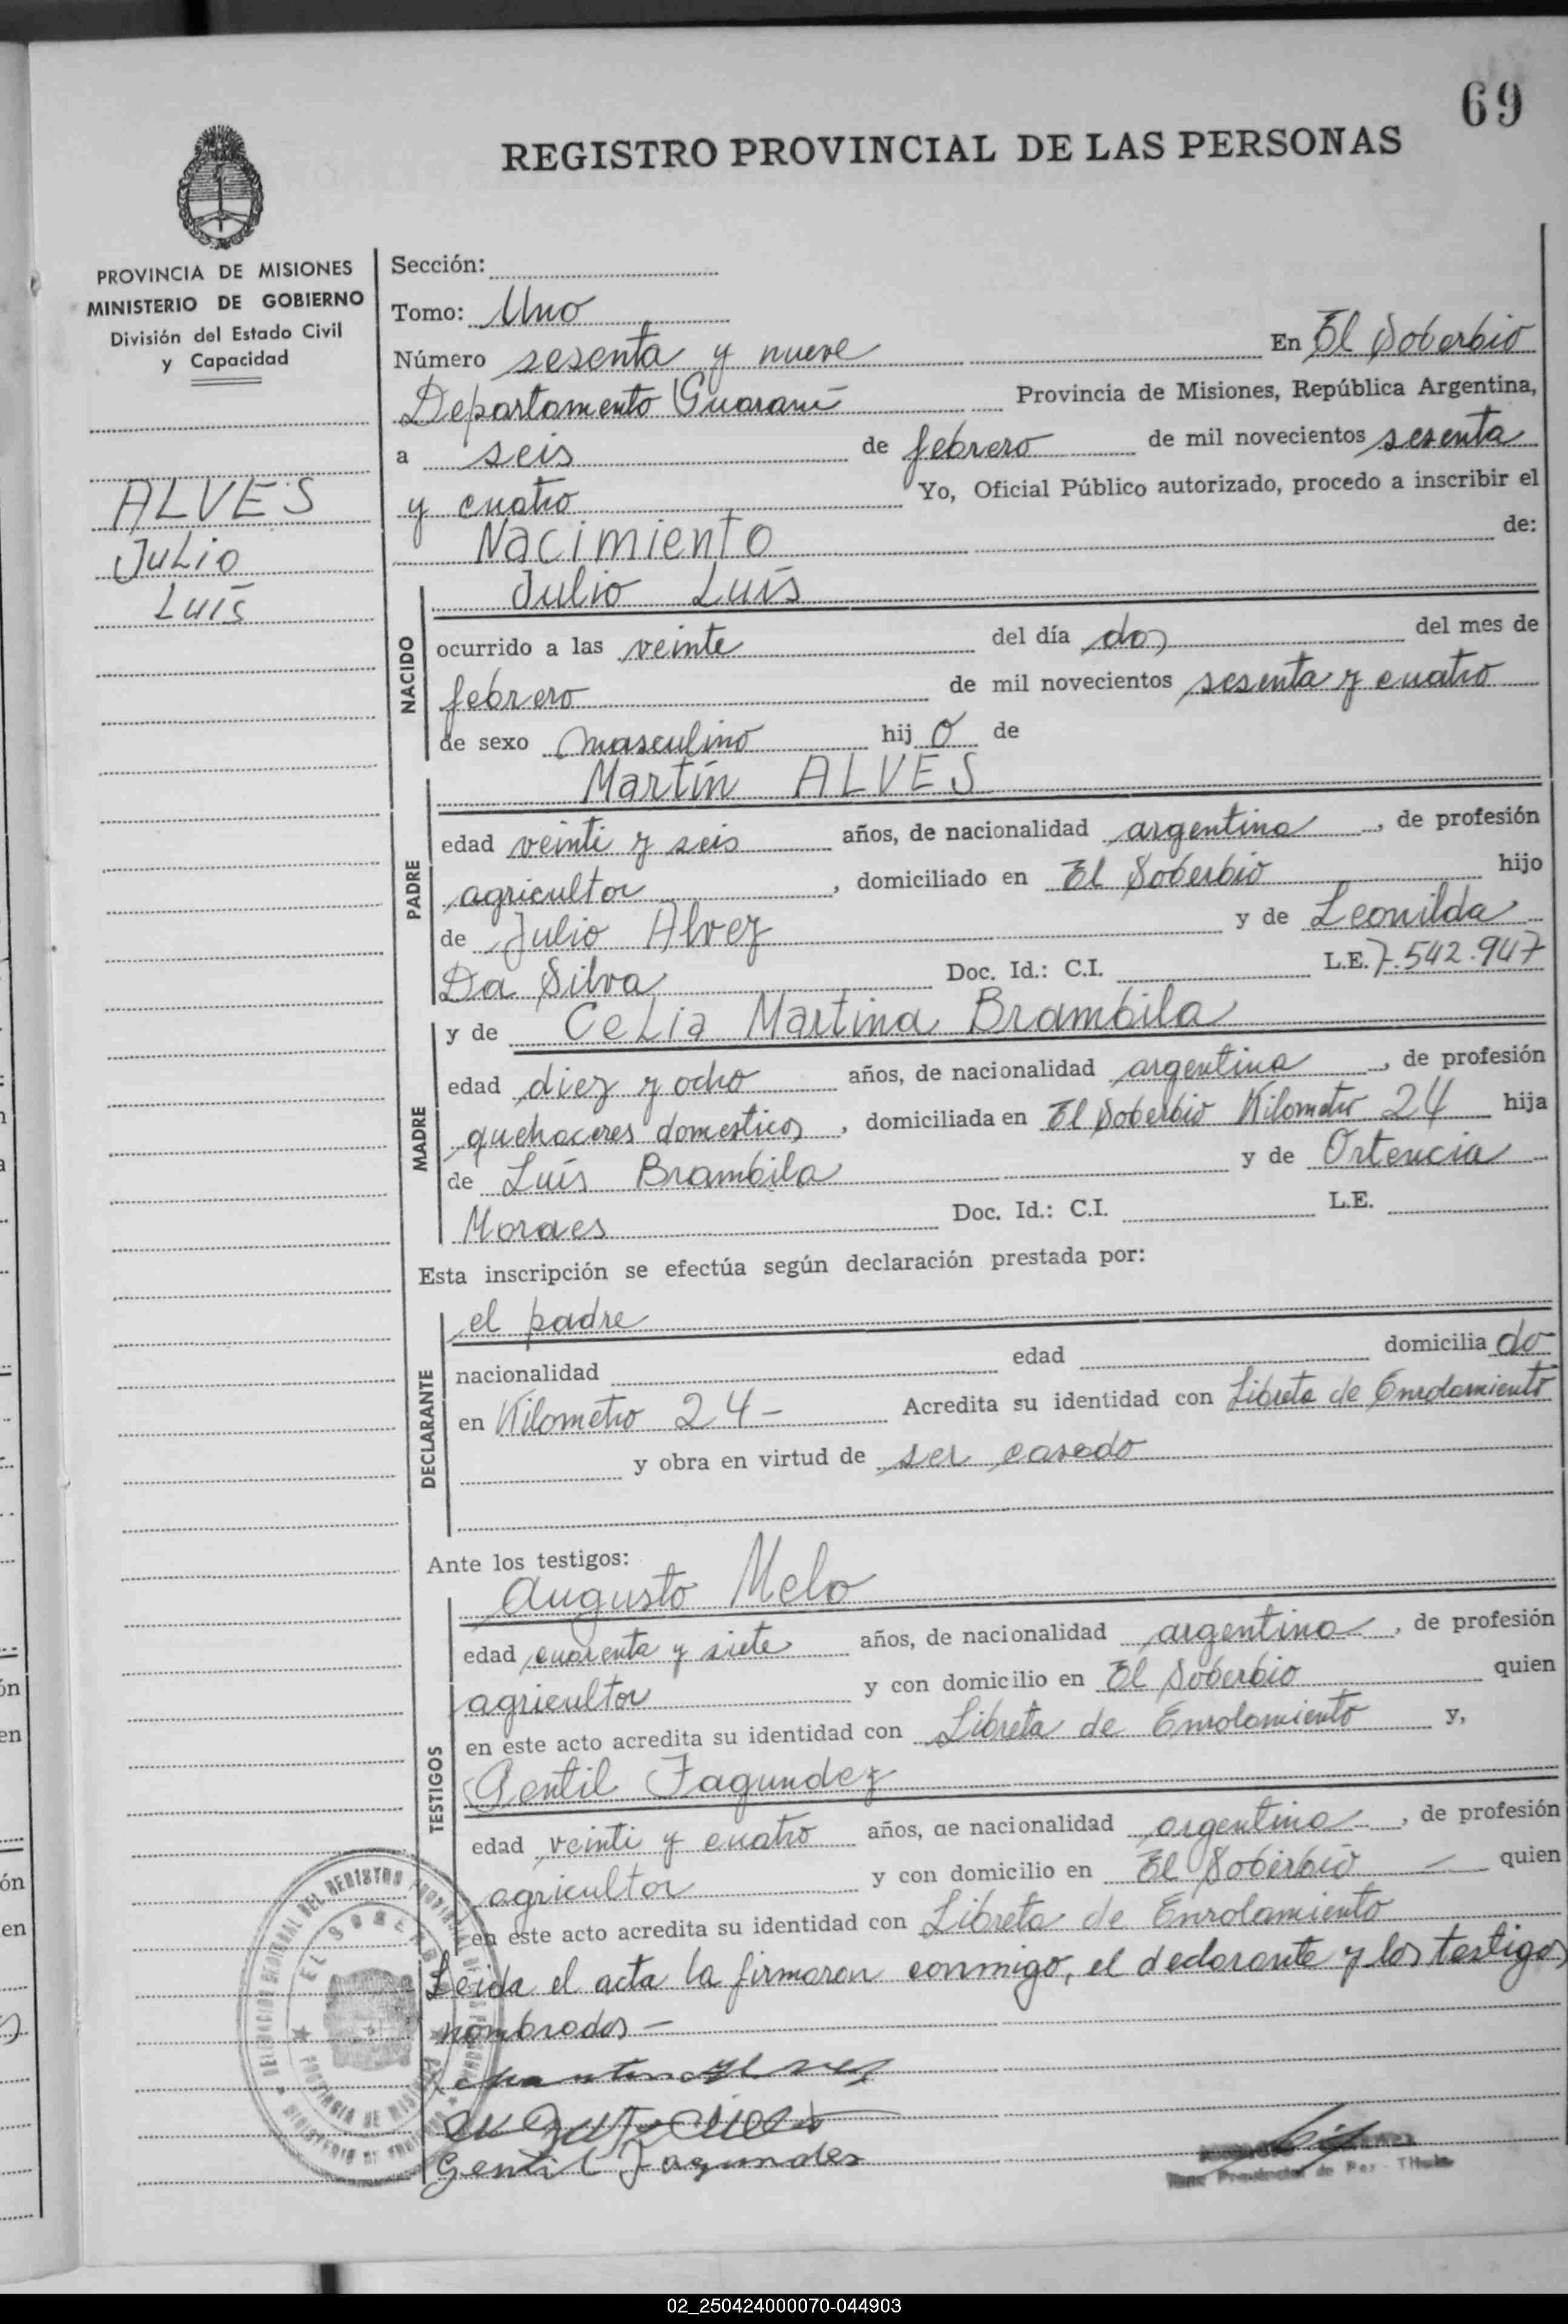 69
REGISTRO PROVINCIAL DE LAS PERSONAS
PROVINCIA DE MISIONES
MINISTERIO DE GOBIERNO
División del Estado Civil
y Capacidad
ALVES
JULIO
LUÍS
Sección:
Tomo: Uno
Número sesenta y nueve En El Soberbio
Departamento Guaraní Provincia de Misiones, República Argentina,
a seis de febrero de mil novecientos sesenta
y cuatro Yo, Oficial Público autorizado, procedo a inscribir el
Nacimiento de:
NACIDO
Julio Luís
ocurrido a las veinte del día dos del mes de
febrero de mil novecientos sesenta y cuatro
de sexo masculino hij o de
PADRE
Martín ALVES
edad veinti y seis años, de nacionalidad argentina, de profesión
agricultor, domiciliado en El Soberbio hijo
de Julio Alvez y de Leonilda
Da Silva Doc. Id.: C.I. L.E. 7.542.947
MADRE
y de Celia Martina Brambila
edad diez y ocho años, de nacionalidad argentina, de profesión
quehaceres domesticos, domiciliada en El Soberbio Kilometro 24 hija
de Luís Brambila y de Ortencia
Moraes Doc. Id.: C.I. L.E.
Esta inscripción se efectúa según declaración prestada por:
DECLARANTE
el padre
nacionalidad edad domicilia do
en Kilometro 24 - Acredita su identidad con Libreta de Enrolamiento
y obra en virtud de ser casado
Ante los testigos:
TESTIGOS
Augusto Melo
edad cuarenta y siete años, de nacionalidad argentina, de profesión
agricultor y con domicilio en El Soberbio quien
en este acto acredita su identidad con Libreta de Enrolamiento y,
Gentil Fagundez
edad veinti y cuatro años, de nacionalidad argentina, de profesión
agricultor y con domicilio en El Soberbio - quien
en este acto acredita su identidad con Libreta de Enrolamiento
Leida el acta la firmaron conmigo, el declarante y los testigos
nombrados -
Gentil Fagundes
02_250424000070-044903